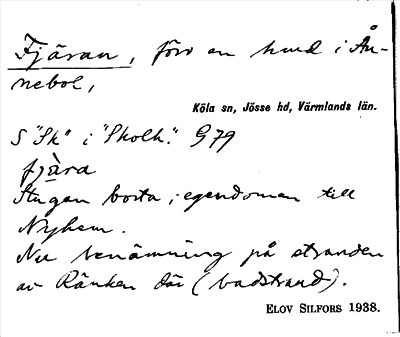 Fjäran, förr en hmd i Ån-
nebol,
Köla sn, Jösse hd, Värmlands län.
S "Sk" i "Skolh." G79
fjära
Stugan borta, egendomen till
Nyhem.
Nu benämning på stranden
av Ränken där (badstrand).
ELOV SILFORS 1938.